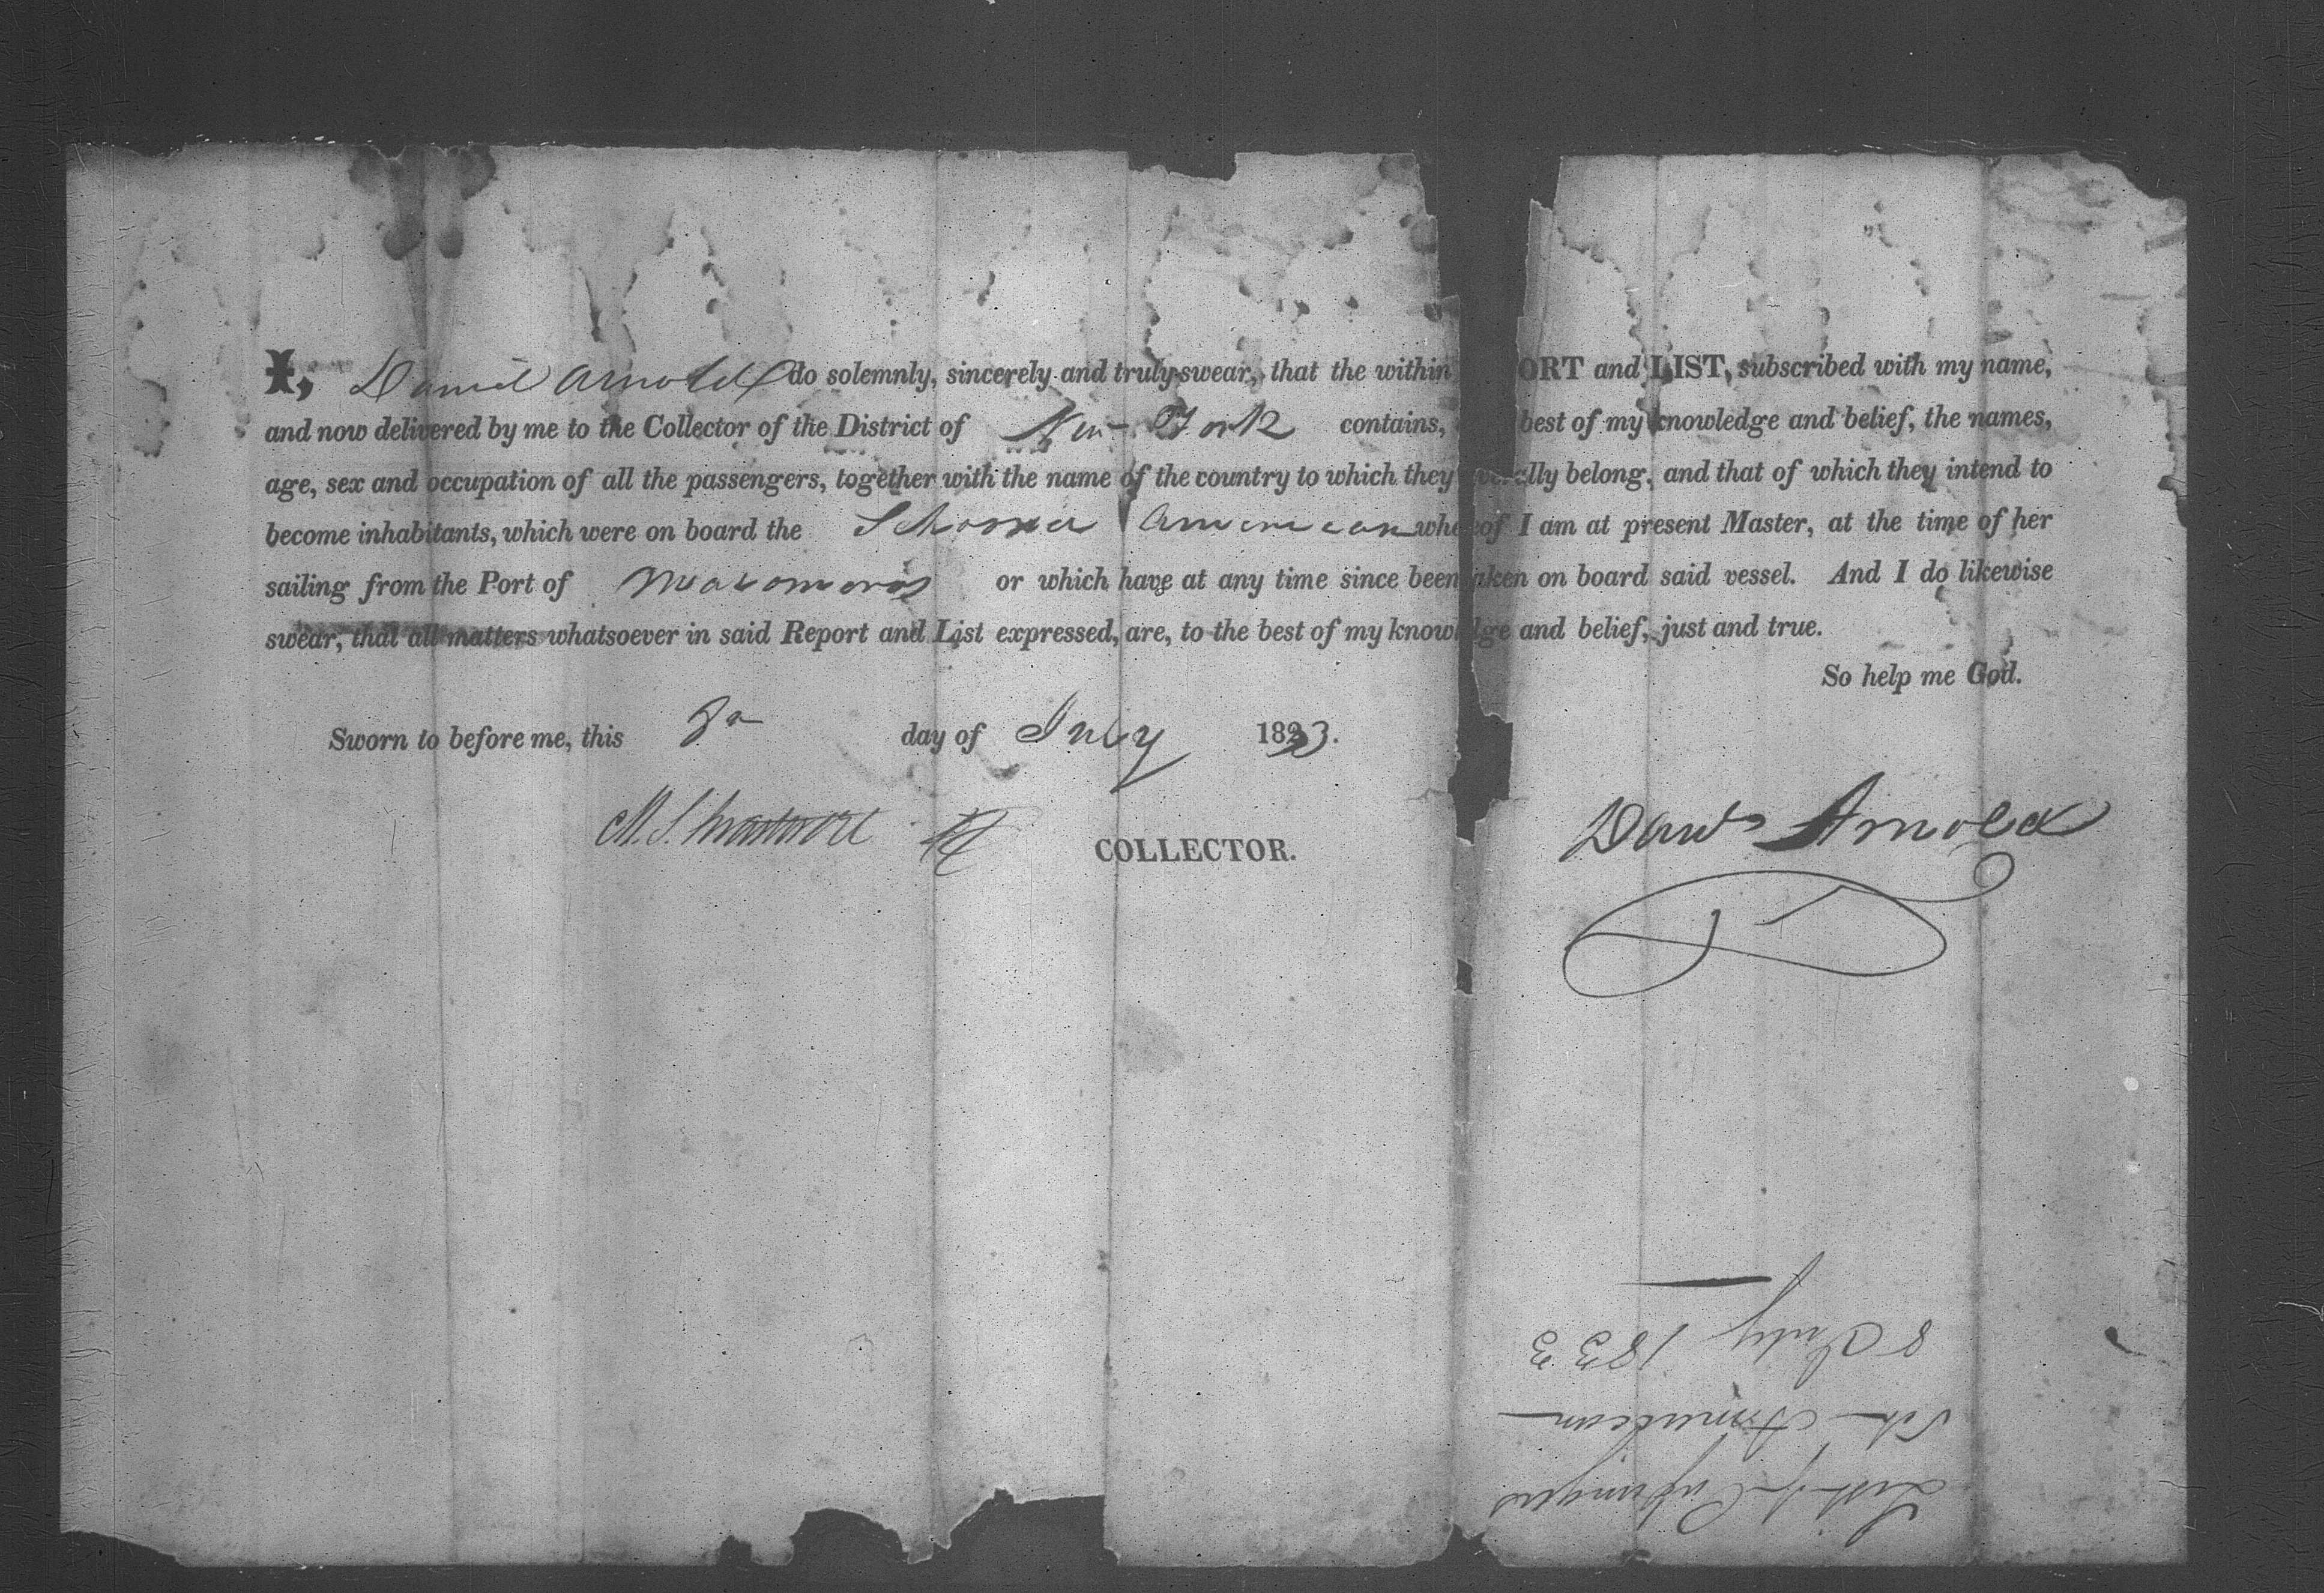 I, Daniel Arnold do solemnly, sincerely and truly swear, that the within ORT and LIST, subscribed with my name,
and now delivered by me to the Collector of the District of New York contains, best of my knowledge and belief, the names,
age, sex and occupation of all the passengers, together with the name of the country to which they erally belong, and that of which they intend to
become inhabitants, which were on board the Schooner American whereof I am at present Master, at the time of her
sailing from the Port of Matamoras or which have at any time since been aken on board said vessel. And I do likewise
swear, that all matters whatsoever in said Report and List expressed, are, to the best of my knowledge and belief, just and true.
So help me God.
Sworn to before me, this 8th day of July 1833.
COLLECTOR.
Arnold
List of Passengers
Schr American
8 July 1833